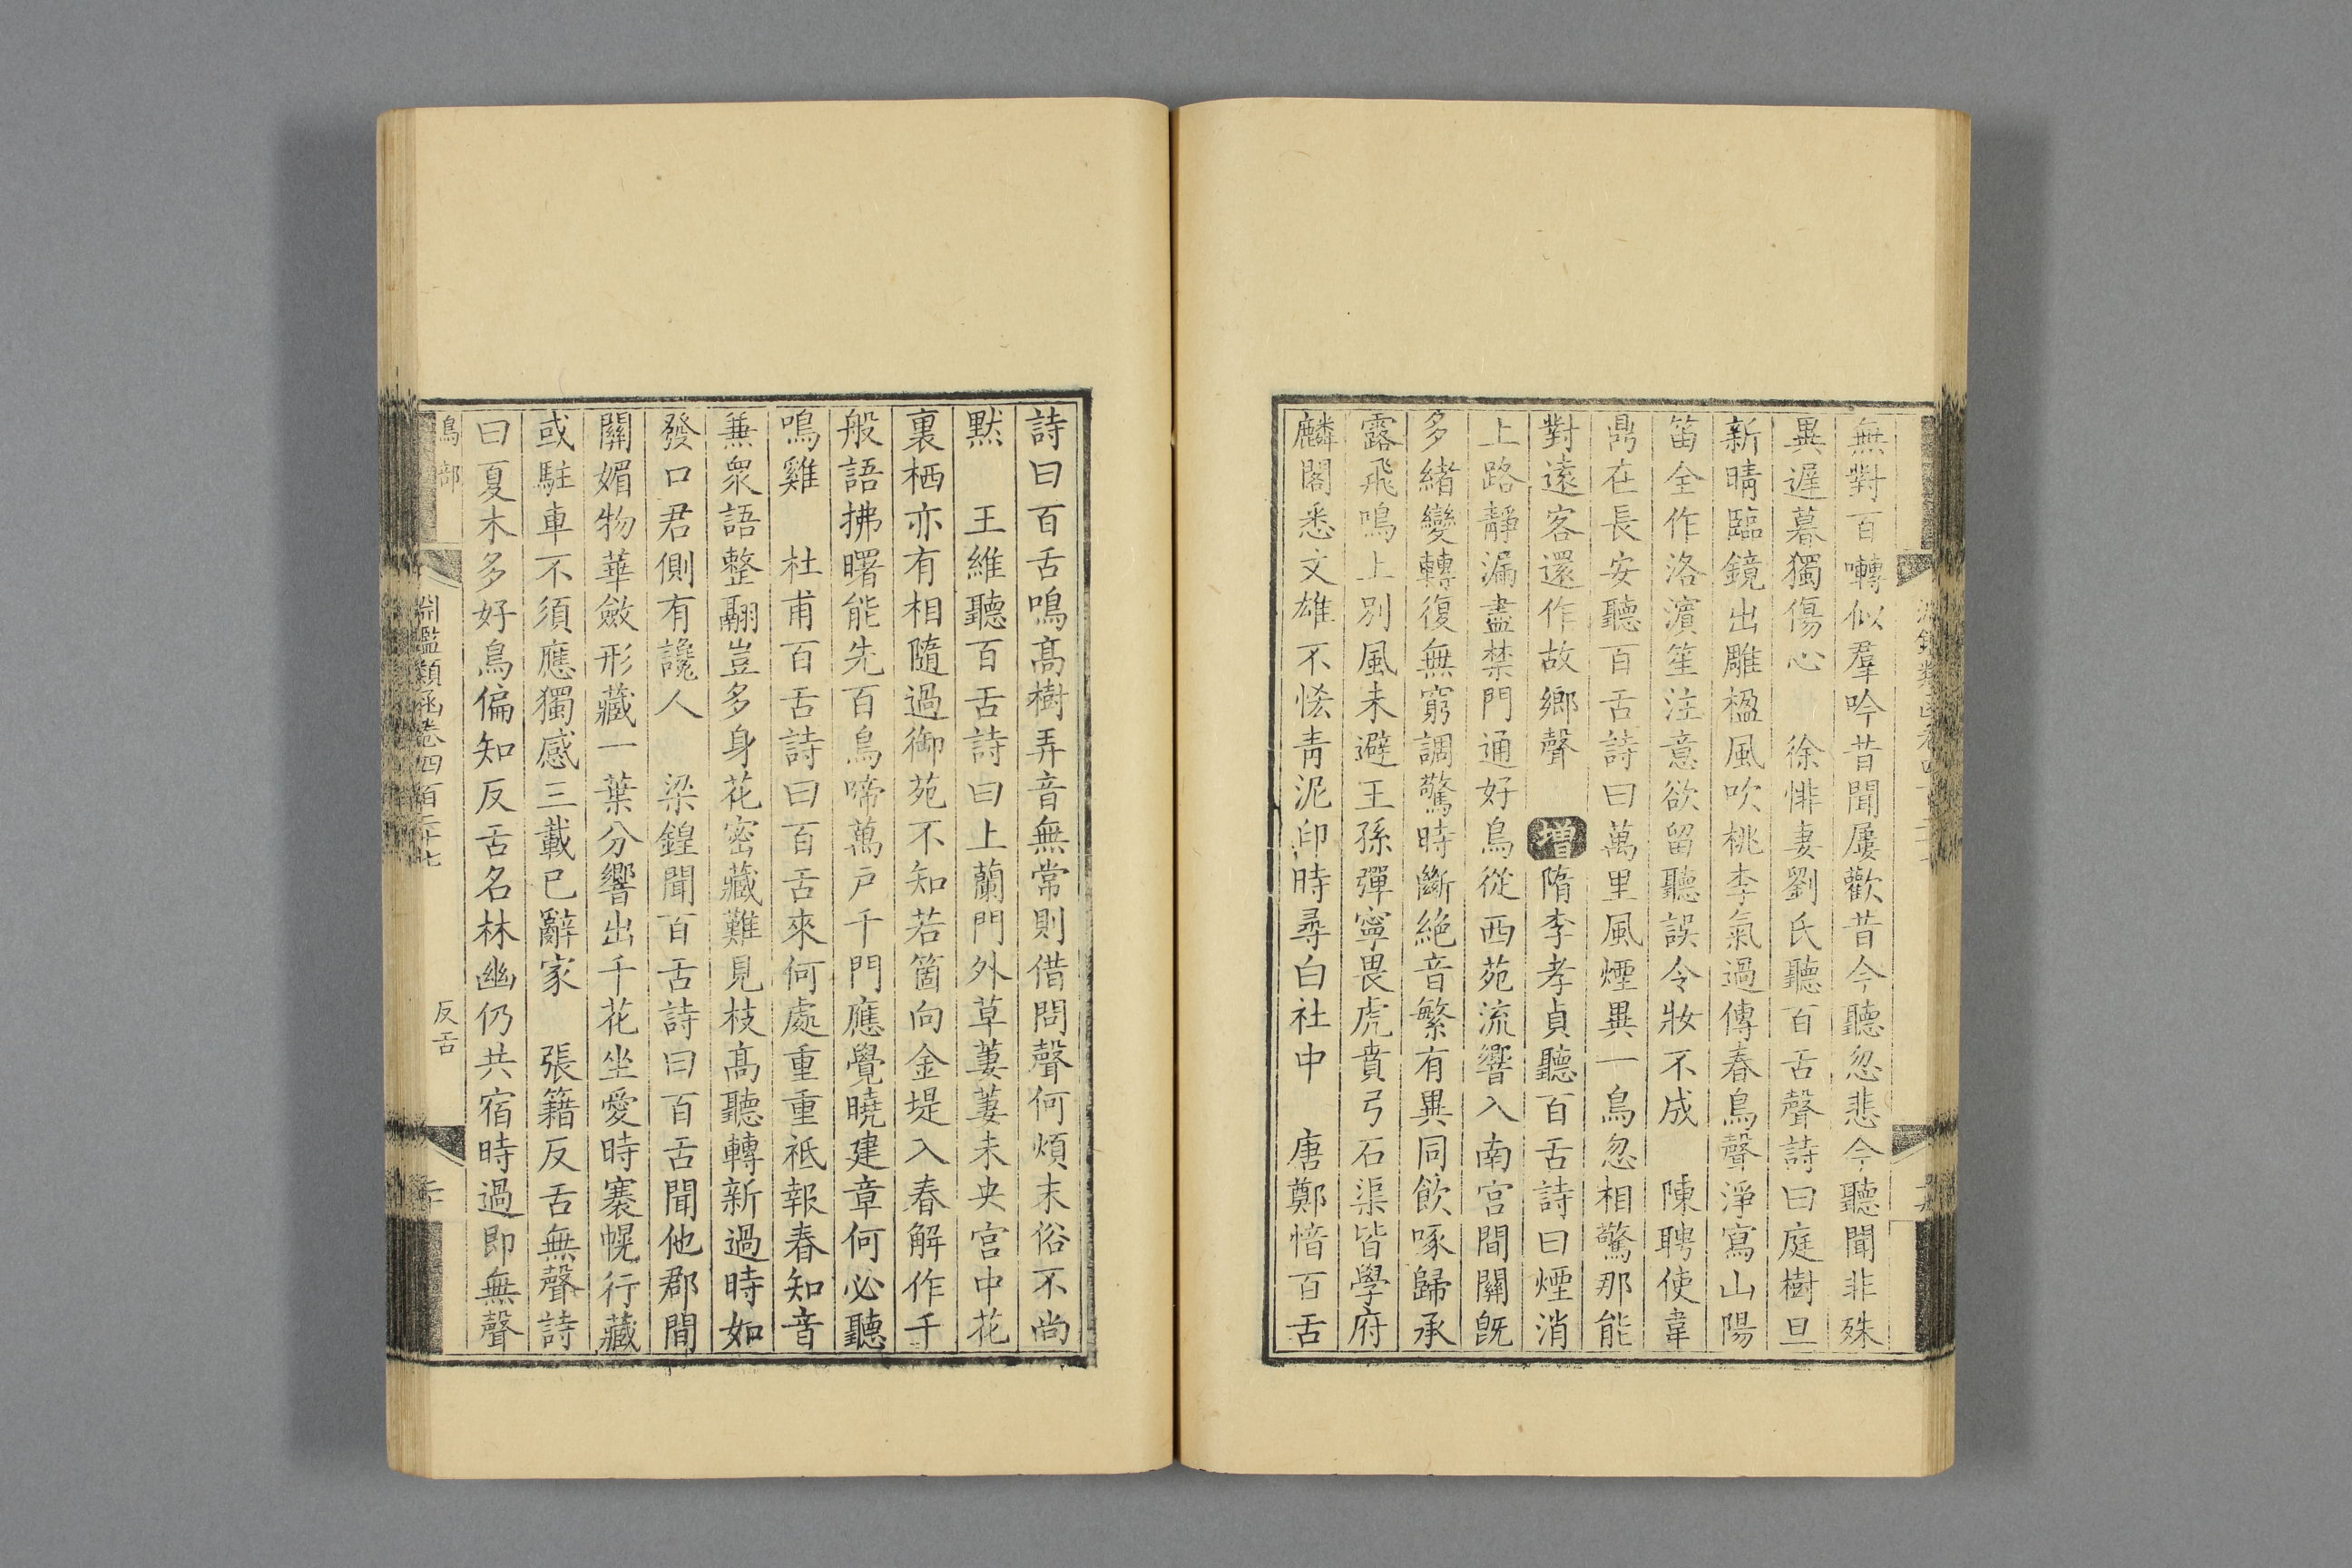 無對百囀似羣吟昔聞屢歡昔今聽忽悲今聽聞非殊
異遲暮獨傷心　徐悱妻劉氏聽百舌聲詩曰庭樹旦
新晴臨鏡出雕楹風吹桃李氣過傳春鳥聲淨寫山陽
笛全作洛濱笙注意欲留聽誤令妝不成　陳聘使韋
鼎在長安聽百舌詩曰萬里風煙異一鳥忽相驚那能
對遠客還作故鄉聲　增隋李孝貞聽百舌詩曰煙消
上路靜漏盡禁門通好鳥從西苑流響入南宮間關旣
多緒變轉復無窮調驚時斷絶音繁有異同飲啄歸承
露飛鳴上別風未避王孫彈寧畏虎賁弓石渠皆學府
麟閣悉文雄不恡青泥印時尋白社中　唐鄭愔百舌
詩曰百舌鳴高樹弄音無常則借問聲何煩末俗不尚
默　王維聽百舌詩曰上蘭門外草萋萋未央宮中花
裏栖亦有相隨過御苑不知若箇向金堤入春解作千
般語拂曙能先百鳥啼萬户千門應覺曉建章何必聽
鳴雞　杜甫百舌詩曰百舌來何處重重祗報春知音
兼衆語整翮豈多身花密藏難見枝高聽轉新過時如
發口君側有讒人　梁鍠聞百舌詩曰百舌聞他郡間
關媚物華斂形藏一葉分響出千花坐愛時褰幌行藏
或駐車不須應獨感三載已辭家　張籍反舌無聲詩
曰夏木多好鳥偏知反舌名林幽仍共宿時過即無聲
鳥部
淵鑑類函卷四百二十七
反舌